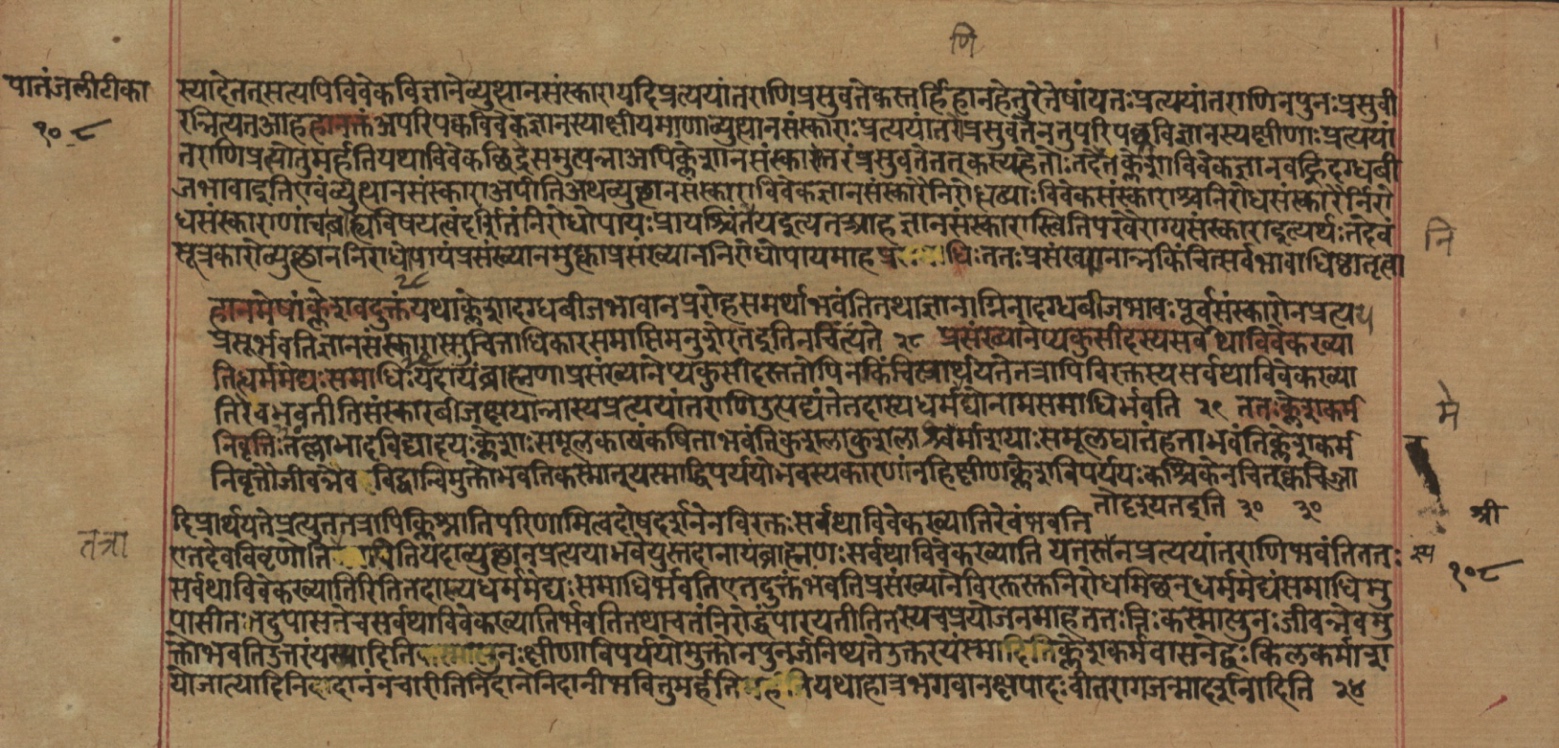 णि
पातंजलीटीका
१०८
स्यादेतत्सत्यपिविवेकविज्ञानेव्युत्थानसंस्कारायदिप्रत्ययांतराणिप्रसुवतेकस्तर्हिहानहेतुरेतेषांयतःप्रत्ययांतराणिनपुनःप्रसुवी
रन्नित्यतआहहानमुक्तंअपरिपक्वविवेकज्ञानस्याक्षीयमाणाव्युत्थानसंस्काराःप्रत्ययांतरंप्रसुवतेनतुपरिपक्वविज्ञानस्यक्षीणाःप्रत्ययां
तराणिप्रत्योतुमर्हंतियथाविवेकछिद्रसमुत्पन्नाअपिक्लेशानसंस्कारांतरंप्रसुवतेतत्कस्यहेतोःतदेतेक्लेशाविवेकज्ञानवह्निदग्धबी
जभावाइतिएवंव्युत्थानसंस्काराअपीतिअथव्युत्थानसंस्काराविवेकज्ञानसंस्कारैर्निरोद्धव्याःविवेकसंस्काराश्चनिरोधसंस्कारैर्निरो
धसंस्काराणांचबाह्यविषयत्वंदर्शितंनिरोधोपायःप्रायश्चिंतयइत्यतआहज्ञानसंस्कारास्त्वितिपरवैराग्यसंस्काराइत्यर्थःतदेवं
सूत्रकारोव्युत्थाननिरोधोपायंप्रसंख्यानमुक्त्वाप्रसंख्याननिरोधोपायमाहप्रधिःततःप्रसंख्यानान्नकिंचित्सर्वभावाधिष्ठातृत्वा
२८
हानमेषांक्लेशवदुक्तंयथाक्लेशादग्धबीजभावानप्ररोहसमर्थाभवंतितथाज्ञानाग्निनादग्धबीजभावःपूर्वसंस्कारोनप्रत्यय
प्रसूर्भवतिज्ञानसंस्कारास्तुचित्ताधिकारसमाप्तिमनुशेरतइतिनचिंत्यंते २८ प्रसंख्यानेप्यकुसीदस्यसर्वथाविवेकख्या
तिर्धर्ममेघःसमाधिःयदायंब्राह्मणाप्रसंख्यानेप्यकुसीदस्ततोपिनकिंचित्प्रार्थयतेतत्रापिविरक्तस्यसर्वथाविवेकख्या
तिरेवभवतीतिसंस्कारबीजक्षयान्नास्यप्रत्ययांतराणिउत्पद्यंतेतदास्यधर्ममेघोनामसमाधिर्भवति २९ ततःक्लेशकर्म
निवृत्तिःतल्लाभादविद्यादयःक्लेशाःसमूलकाषंकषिताभवंतिकुशलाकुशलाश्चकर्माशयाःसमूलघातंहताभवंतिक्लेशकर्म
निवृत्तौजीवन्नेवविद्वान्विमुक्तोभवतिकस्मात्यस्माद्विपर्ययोभवस्यकारणंनहिक्षीणक्लेशविपर्ययःकश्चित्केनचित्क्वचिज्जा
तोदृश्यतइति ३० ३०
दिप्रार्थयतेप्रत्युततत्रापिक्लिश्नातिपरिणामित्वदोषदर्शनेनविरक्तःसर्वथाविवेकख्यातिरेवंभवति
एतदेवविवृणोतिपितियदाव्युत्थानप्रत्ययाभवेयुस्तदानायंब्राह्मणःसर्वथाविवेकख्याति यतस्तस्यनप्रत्ययांतराणिभवंतिततः
सर्वथाविवेकख्यातिरितितदास्यधर्ममेघःसमाधिर्भवतिएतदुक्तंभवतिप्रसंख्यानेविरक्तस्तन्निरोधमिछन्धर्ममेघंसमाधिमु
पासीततदुपासनेचसर्वथाविवेकख्यातिर्भवतितथाचतंनिरोद्धुंपारयतीतितस्यचप्रयोजनमाहततःत्तिःकस्मात्पुनःजीवन्नेवमु
क्तोभवतिउत्तरंयस्मादितिनःक्षीणाविपर्ययोमुक्तोनपुनर्जनिष्यतेउक्तरयंस्मादितिक्लेशकर्मवासनेद्धःकिलकर्माश
योजात्यादिनिदानंनचासीतिनिदानेनिदानीभवितुमर्हतियथाहात्रभगवानक्षपादःवीतरागजन्मादर्शनादिति २४
नि
मे
श्री
१०८
तत्रा